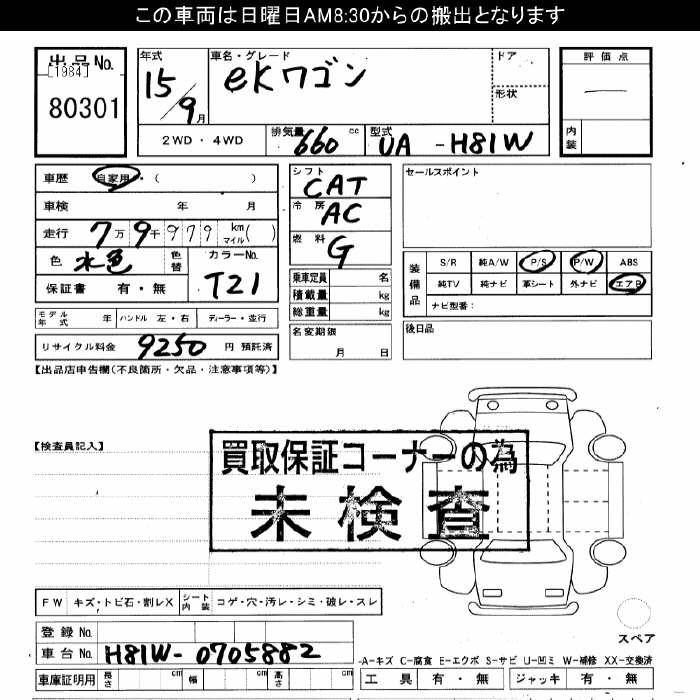 この車両は日曜日AM8:30からの搬出となります
出品No.
[1984]
80301
年式
15/9月
車名・グレード
eKワゴン
ドア
形状
評価点
内装
2WD・4WD
排気量 660 cc
型式 UA-H81W
車歴 自家用・( )
車検 年 月
走行 7万9千979 km マイル( )
色 水色 色替
カラーNo. T21
保証書 有・無
モデル年式 年
ハンドル 左・右
ディーラー・並行
リサイクル料金 9250 円 預託済
シフト CAT
冷房 AC
燃料 G
乗車定員 名
積載量 kg
総重量 kg
名変期限
月 日
セールスポイント
装備品
S/R 純A/W P/S P/W ABS
純TV 純ナビ 革シート 外ナビ エアB
ナビ型番:
後日品
【出品店申告欄(不良箇所・欠品・注意事項等)】
【検査員記入】
買取保証コーナーの為
未検査
FW キズ・トビ石・割レX
シート内装 コゲ・穴・汚レ・シミ・破レ・スレ
スペア
登録No.
車台No. H81W-0705882
車庫証明用 長さ cm 幅 cm 高さ cm
-A-キズ C-腐食 E-エクボ S-サビ U-凹ミ W-補修 XX-交換済
工具 有・無 ジャッキ 有・無